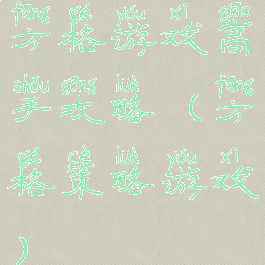 fāng gé yóu xì gāo
方格游戏高
shǒu gōng lüè fāng
手攻略（方
gé cè lüè yóu xì
格策略游戏
）